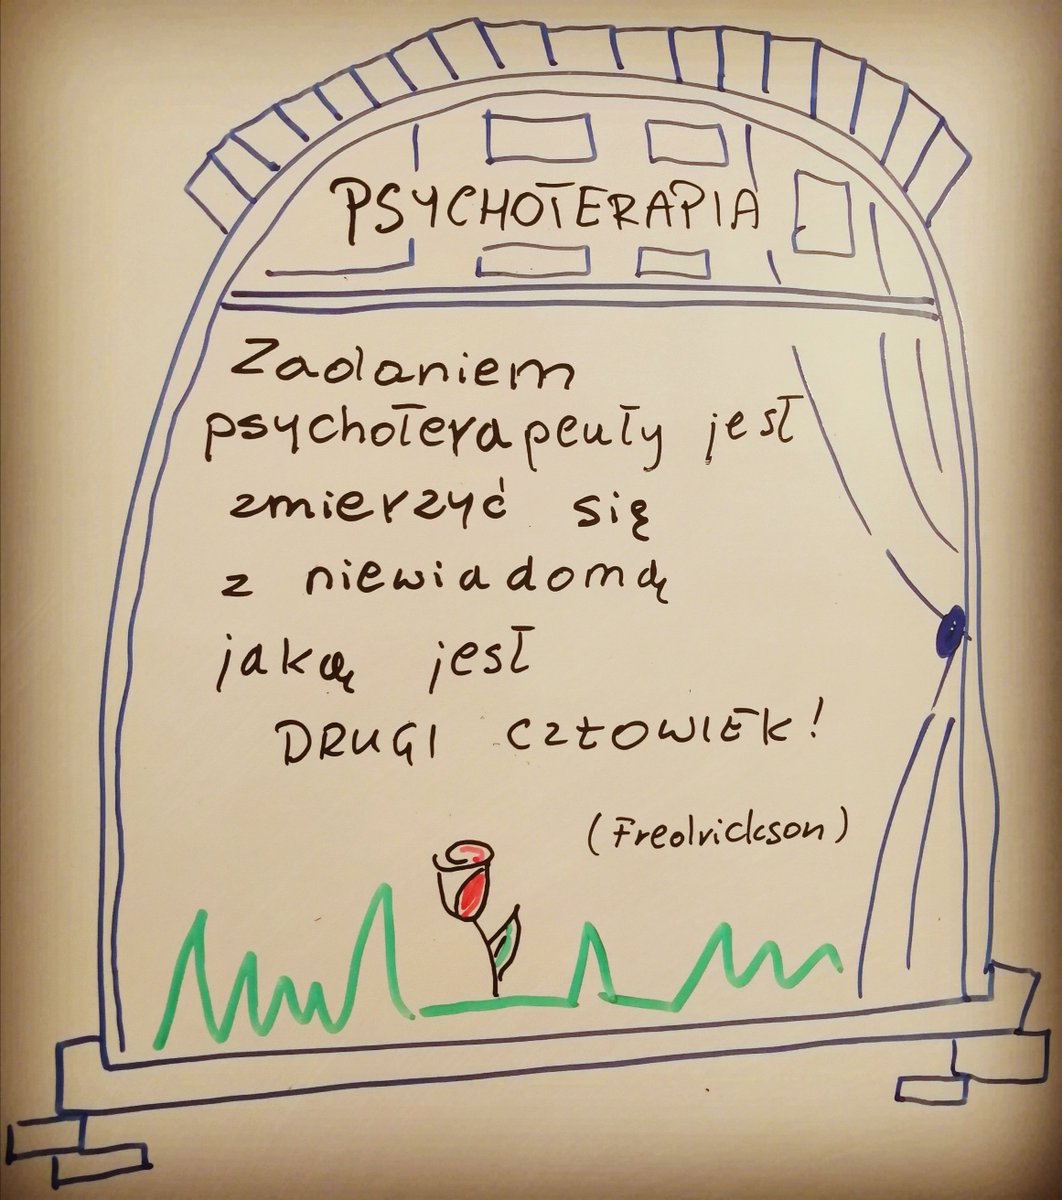 PSYCHOTERAPIA
Zadaniem
psychoterapeuty jest
zmierzyć się
z niewiadomą
jaką jest
DRUGI CZŁOWIEK!
(Fredrickson)